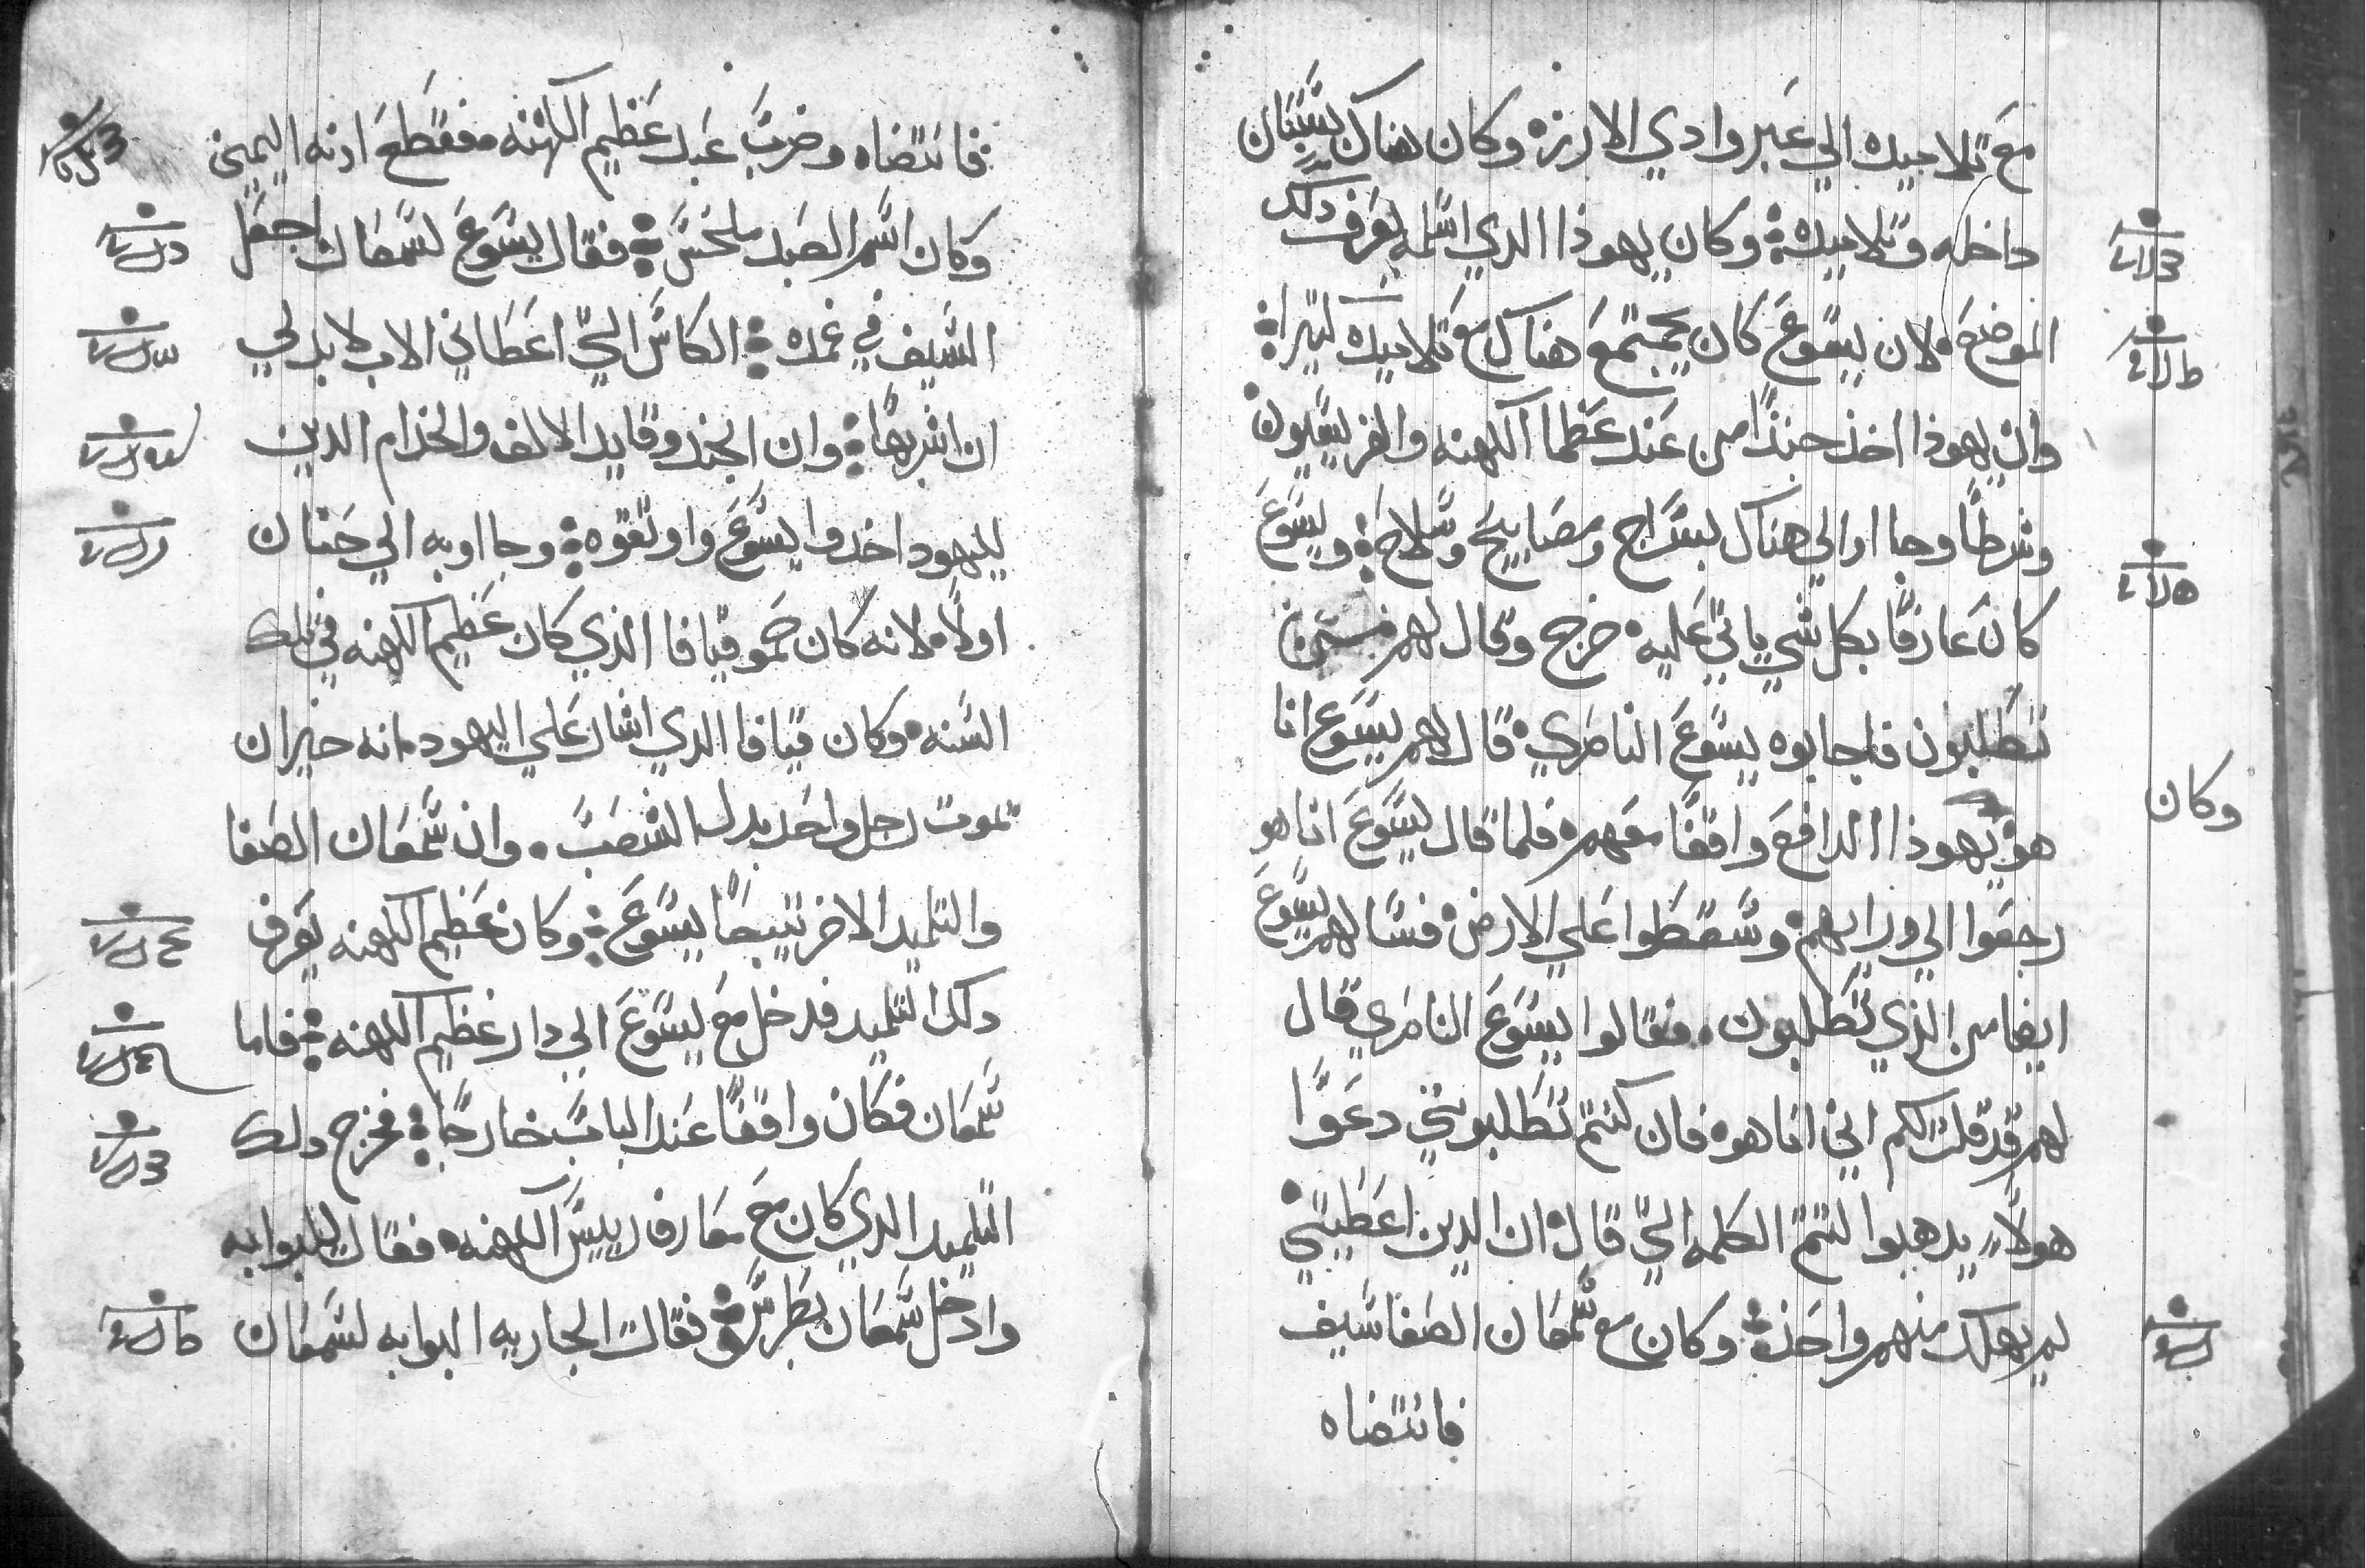 مع تلاميده الي عبر وادي الارزه وكان هناك بستان
داخله وتلاميده وكان يهوذا الدي اسلمه يعرف دلك
الموضع لان يسوع كان يجتمع هناك مع تلاميده كتيرا
وان يهوذا اخذ جندا من عند عظما الكهنه والفريسيون
وشرطا وجااوا الي هناك بسراج ومصابيح وسلاح ويسوع
كان عارفا بكل شي ياتي عليه خرج وقال لهم من
تطلبون فاجابوه يسوع الناصري قال لهم يسوع انا
وكان
هو يهوذا الدافع واقفا معهم فلما قال يسوع انا هو
رجعوا الي ورايهم وسقطوا علي الارض فسالهم يسوع
ايضا من الذي تطلبون فقالوا يسوع الناصري قال
لهم قد قلت لكم اني انا هو فان كنتم تطلبوني دعوا
هولاء يدهبوا لتتم الكلمه التي قال ان الدين اعطيتني
لم يهلك منهم واحد وكان مع شمعان الصفا سيف
فانتضاه
فانتضاه وضرب عبد عظيم الكهنه فقطع ادنه اليمني
وكان اسم العبد ملخس فقال يسوع لشمعان اجعل
السيف في غمده الكاس التي اعطاني الاب لا بد لي
ان اشربها وان الجند وقايد الالف والخدام الدين
لليهود اخدوا يسوع واوتقوه وجااوبه الي حنان
اولا لانه كان حمو قيافا الذي كان عظيم الكهنه في تلك
السنه وكان قيافا الدي اشار علي اليهود انه خير ان
يموت رجل واحد بدل الشعب وان شمعان الصفا
والتلميد الاخر تبعا يسوع وكان عظيم الكهنه يعرف
دلك التلميد فدخل مع يسوع الي دار عظيم الكهنه فاما
شمعان فكان واقفا عند الباب خارجا فخرج دلك
التلميد الدي كان مع معارف رييس الكهنه فقال للبوابه
وادخل شمعان بطرس فقالت الجاريه البوابه لشمعان